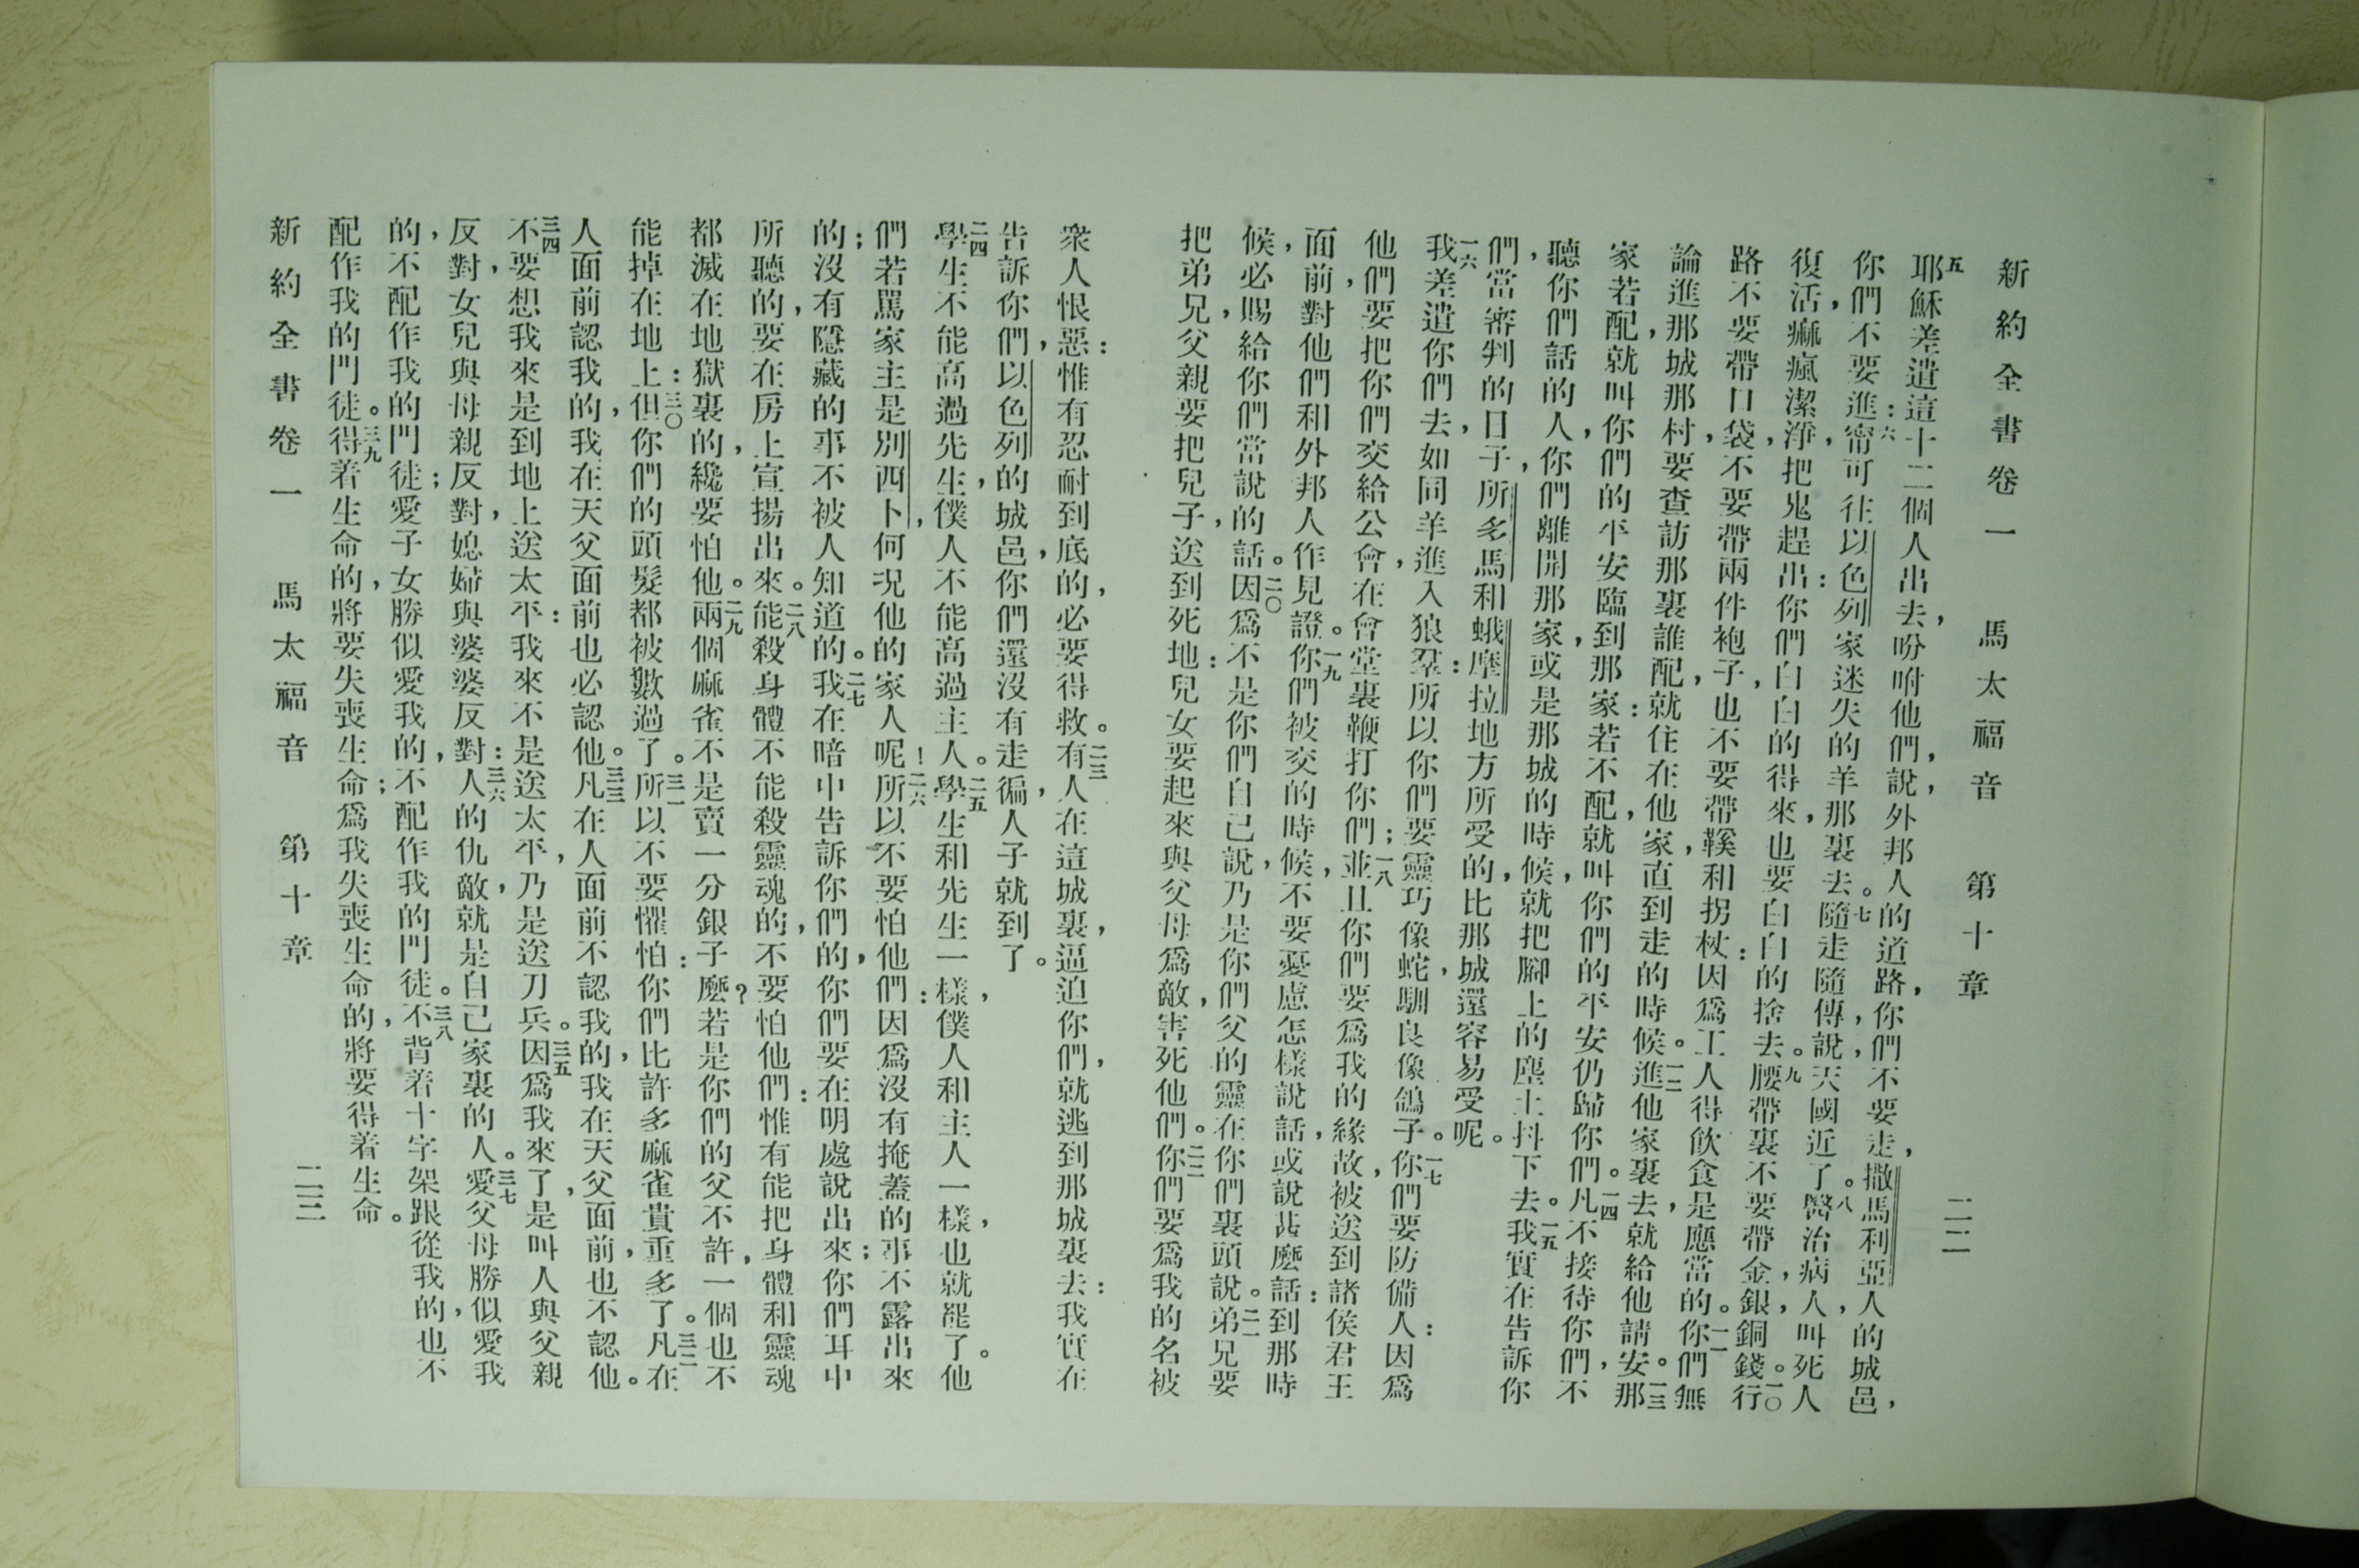 新約全書卷一 馬太福音 第十章 二二
五耶穌差遣這十二個人出去，吩咐他們，說，外邦人的道路，你們不要走，撒馬利亞人的城邑，
你們不要進：六甯可往以色列家迷失的羊那裏去。七隨走隨傳，說，天國近了。八醫治病人，叫死人
復活，痲瘋潔淨，把鬼趕出：你們白白的得來，也要白白的捨去。九腰帶裏不要帶金，銀，銅錢。一〇行
路不要帶口袋，不要帶兩件袍子，也不要帶鞵和拐杖：因爲工人得飲食，是應當的。一一你們無
論進那城那村，要查訪那裏誰配，就住在他家，直到走的時候。一二進他家裏去，就給他請安。一三那
家若配，就叫你們的平安臨到那家：若不配，就叫你們的平安仍歸你們。一四凡不接待你們，不
聽你們話的人，你們離開那家，或是那城的時候，就把腳上的塵土抖下去。一五我實在告訴你
們，當審判的日子，所多馬和蛾摩拉地方所受的，比那城還容易受呢。
一六我差遣你們去，如同羊進入狼羣：所以你們要靈巧像蛇，馴良像鴿子。一七你們要防備人：因爲
他們要把你們交給公會，在會堂裏鞭打你們；一八並且你們要爲我的緣故，被送到諸侯君王
面前，對他們和外邦人作見證。一九你們被交的時候，不要憂慮怎樣說話，或說甚麼話：到那時
候，必賜給你們當說的話。二〇因爲不是你們自己說，乃是你們父的靈在你們裏頭說。二一弟兄要
把弟兄，父親要把兒子，送到死地：兒女要起來與父母爲敵，害死他們。二二你們要爲我的名被
衆人恨惡：惟有忍耐到底的，必要得救。二三有人在這城裏，逼迫你們，就逃到那城裏去：我實在
告訴你們，以色列的城邑，你們還沒有走徧，人子就到了。
二四學生不能高過先生，僕人不能高過主人。二五學生和先生一樣，僕人和主人一樣，也就罷了。他
們若罵家主是別西卜，何況他的家人呢！二六所以不要怕他們：因爲沒有掩蓋的事，不露出來
的；沒有隱藏的事，不被人知道的。二七我在暗中告訴你們的，你們要在明處說出來；你們耳中
所聽的，要在房上宣揚出來。二八能殺身體不能殺靈魂的，不要怕他們：惟有能把身體和靈魂
都滅在地獄裏的，纔要怕他。二九兩個麻雀不是賣一分銀子麼？若是你們的父不許，一個也不
能掉在地上：三〇但你們的頭髮都被數過了。三一所以不要懼怕：你們比許多麻雀貴重多了。三二凡在
人面前認我的，我在天父面前也必認他。三三凡在人面前不認我的，我在天父面前，也不認他。
三四不要想我來是到地上送太平：我來不是送太平，乃是送刀兵。三五因爲我來了，是叫人與父親
反對，女兒與母親反對，媳婦與婆婆反對：三六人的仇敵，就是自己家裏的人。三七愛父母勝似愛我
的，不配作我的門徒；愛子女勝似愛我的，不配作我的門徒。三八不背着十字架跟從我的，也不
配作我的門徒。三九得着生命的，將要失喪生命；爲我失喪生命的，將要得着生命。
新約全書卷一 馬太福音 第十章 二三